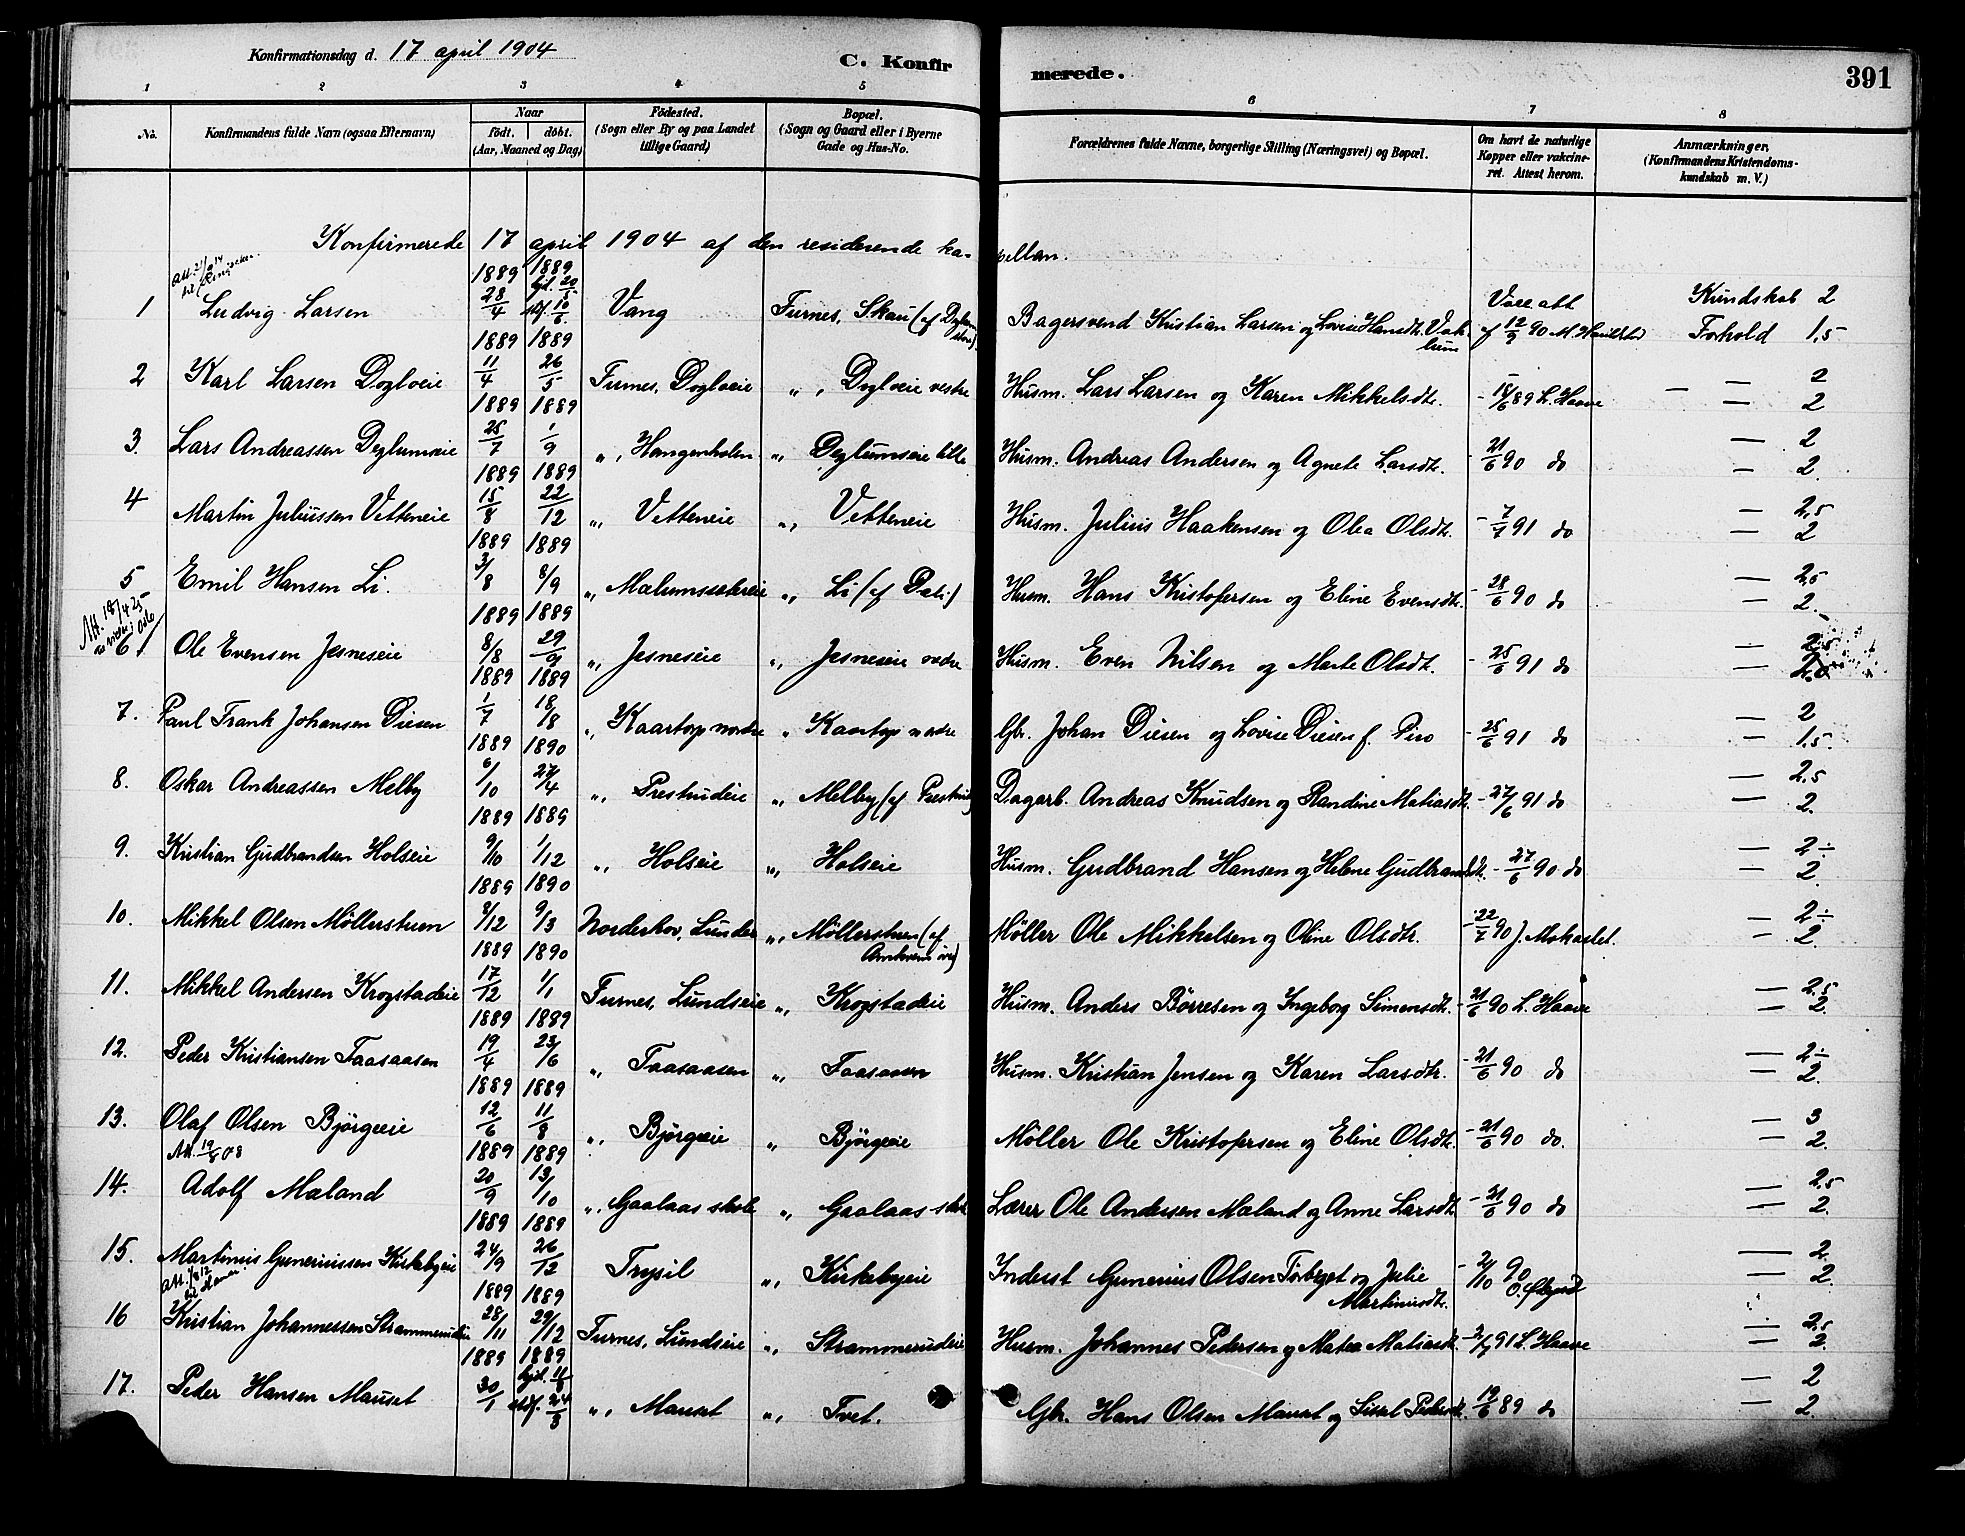 Konfirmationsdag d. 17 april 1904
C. Konfirmerede.
391
1 2 3 4 5 6 7 8
No. Konfirmandens fulde Navn (ogsaa Efternavn) Naar født. døbt. (Aar, Maaned og Dag) Fødested. (Sogn eller By og paa Landet tillige Gaard) Bopæl. (Sogn og Gaard eller i Byerne Gade og Hus-No. Forældrenes fulde Navne, borgerlige Stilling (Næringsvei) og Bopæl. Om havt de naturlige Kopper eller vakcineret. Attest herom. Anmærkninger, (Konfirmandens Kristendomskundskab m. V.)
Konfirmerede 17 april 1904 af den residerende kapellan.
1 Ludvig Larsen 1889 28/4 1889 hjd. 20/5 stf. 10/6 Vang Furnes, Skau Bagersvend Kristian Larsen og Lovise Hansdt. Vacc att f 12/9 90 Kundskab 2 Forhold 1,5
2 Karl Larsen Dogloeie 1889 11/4 1889 26/5 Furnes, Dogloeie „, Dogloeie vestre Husm. Lars Larsen og Karen Mikkelsdtr. - 14/6 89 L. Haave — — 2 — 2
3. Lars Andreassen Deglumseie 1889 25/7 1889 1/9 „, Hangenholen „ Deglumseie lille Husm. Andreas Andersen og Agnete Larsdt. - 21/6 90 do — 2 — 2.
4 Martin Juliussen Vetteneie 1889 15/8 1889 22/12 „, Vetteneie „, Vetteneie Husm. Julius Haakensen og Olea Olsdt. - 7/7 91 do — 2,5 — 2
5 Emil Hansen Li. 1889 3/8 1889 8/9 „ „ Li (af Dæli) Husm. Hans Kristofersen og Eline Evensdt. - 28/6 90 do — 2,5 — 2.
Att. 18/4 25
6 Ole Evensen Jesneseie 1889 8/8 1889 29/9 „, Jesneseie „, Jesneseie nedre Husm. Even Nilsen og Marte Olsdt. - 25/6 91 do — 2,5 — 2,0
7. Paul Frank Johansen Diesen 1889 1/7 1889 18/8 „, Kaartorp nordre „ Kaartorp nordre Gbr. Johan Diesen og Lovise Diesen f. Piro - 25/6 91 do — 2 — 1,5.
8. Oskar Andreassen Melby 1889 6/10 1890 27/4 „, Prestrudeie „ Melby (af Prestrud) Dagarb. Andreas Knudsen og Randine Matiasdt. - 27/6 91 do — 2,5 — 2.
9. Kristian Gudbrandsen Holseie 1889 9/10 1889 1/12 „, Holseie „, Holseie Husm. Gudbrand Hansen og Helene Gudbrandsdt. - 27/6 90 do — 2÷ — 2.
10. Mikkel Olsen Möllerstuen 1889 8/12 1890 9/13 Norderhov, Lunder „, Möllerstuen (af Møller Ole Mikkelsen og Oline Olsdtr. - 22/7 90 — 2÷ — 2.
11. Mikkel Andersen Krogstadeie 1889 17/12 1890 1/1 Furnes, Lundseie „, Krogstadeie Husm. Anders Børresen og Ingeborg Simensdt. - 21/6 90 L. Haave — 2,5 — 2.
12. Peder Kristiansen Faasaasen 1889 19/4 1889 23/6 „, Faasaasen „, Faasaasen Husm. Kristian Jensen og Karen Larsdtr. - 21/6 90 do — 2÷ — 2.
13. Olaf Olsen Bjørgeeie 1889 12/6 1889 11/8 „, Bjørgeeie „ Bjørgeeie Møller Ole Kristofersen og Eline Olsdt. - 21/6 90 do. — 3 — 2.
Att. 19/8 08
14. Adolf Mæland 1889 20/9 1889 13/10 „, Gaalaas skole „, Gaalaas skole Lærer Ole Andersen Mæland og Anne Larsdt - 21/6 90 do — 2,5 — 2.
15. Martinus Gunerius­sen Kirkebyeie 1889 24/9 1889 26/12 Trysil „, Kirkebyeie Inderst Gunerius Olsen Torberget og Julie Martinusdt. - 2/10 90 — 2. — 2.
16 Kristian Johannessen Strammerudeie 1889 28/11 1889 29/12 Furnes, Lundseie „, Strammerudeie Husm. Johannes Pedersen og Matea Matiasdt. - 2/7 91 L. Haave — 2,5 — 2.
17. Peder Hansen Mauset 1889 30/1 1889 hjd. 11/3 stdf. 24/3 „, Mauset „, Tvet. Gbr. Hans Olsen Mauset og Sissel Pedersdt. 12/6 89 do — 2 — 2.